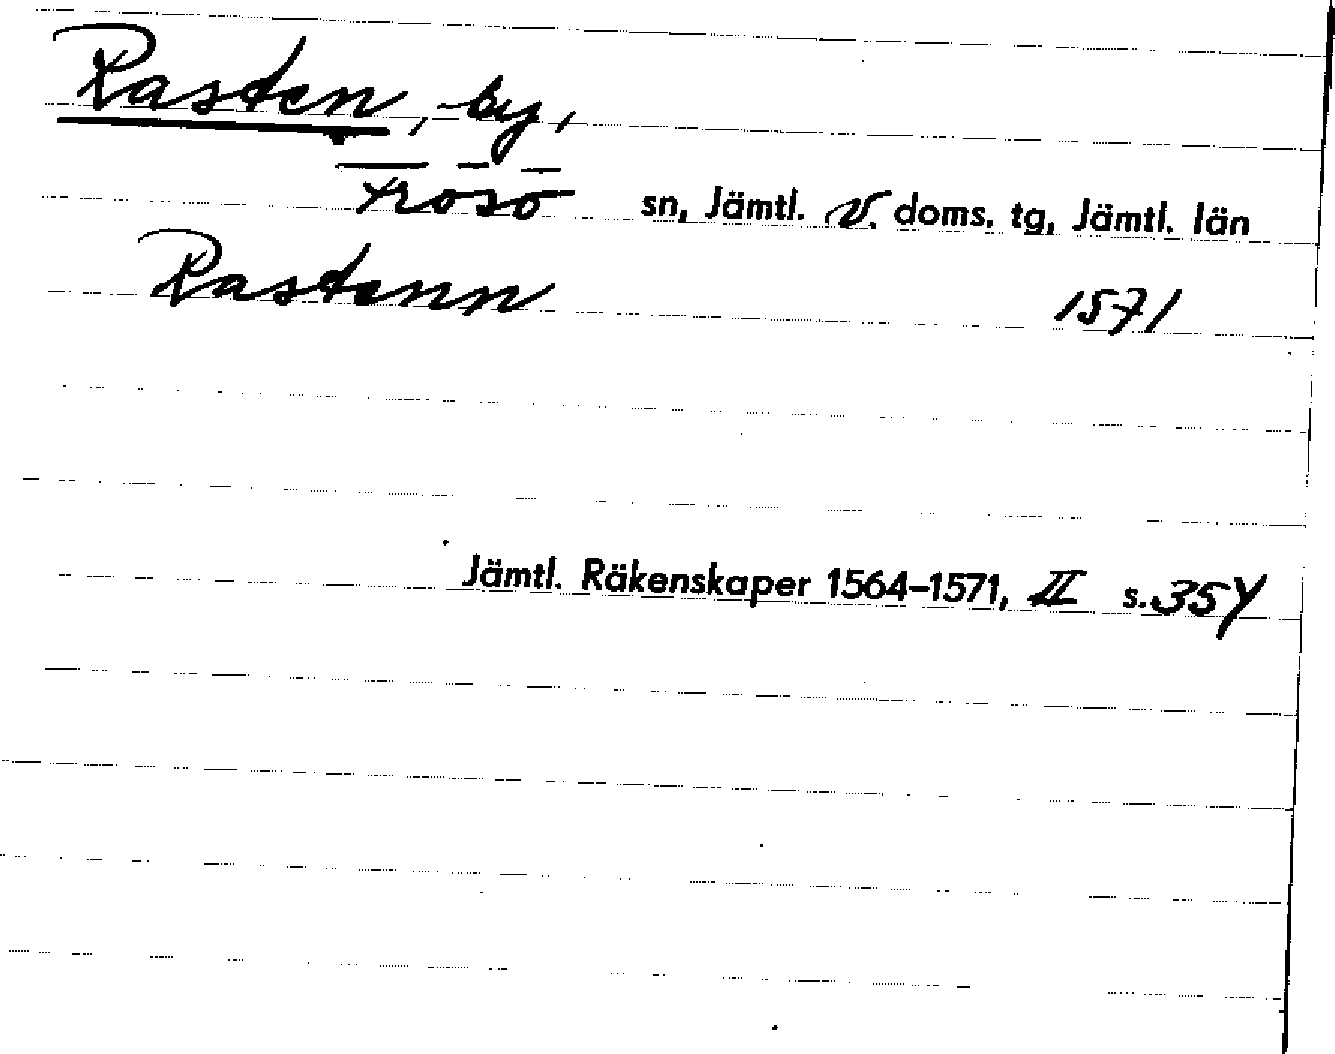 Rasten, -by,
Frösö sn, Jämtl. v. doms. tg, Jämtl. län
Rastenn 1571
Jämtl. Räkenskaper 1564–1571, II s. 354